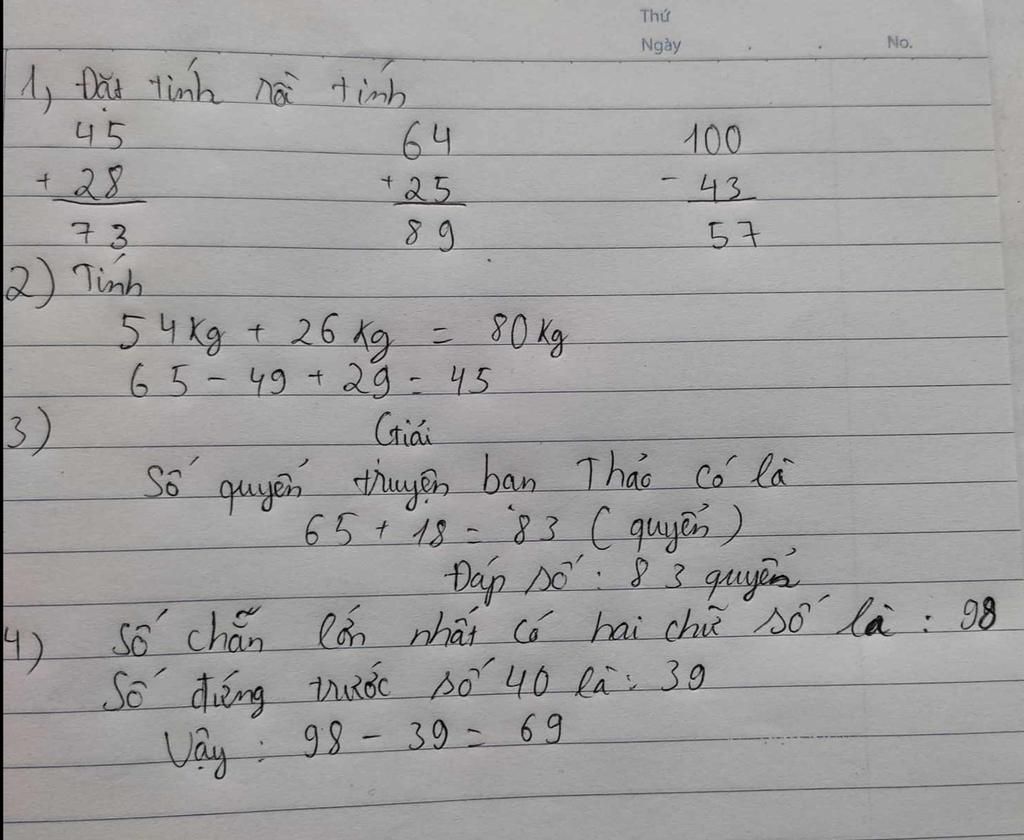 Thứ
Ngày . . No.
1, Đặt tính rồi tính
45 64 100
+ 28 + 25 - 43
73 89 57
2) Tính
54kg + 26kg = 80kg
65 - 49 + 29 = 45
3) Giải
Số quyển truyện bạn Thảo có là
65 + 18 = 83 (quyển)
Đáp số : 83 quyển
4) Số chẵn lớn nhất có hai chữ số là : 98
Số đứng trước số 40 là : 39
Vậy : 98 - 39 = 69